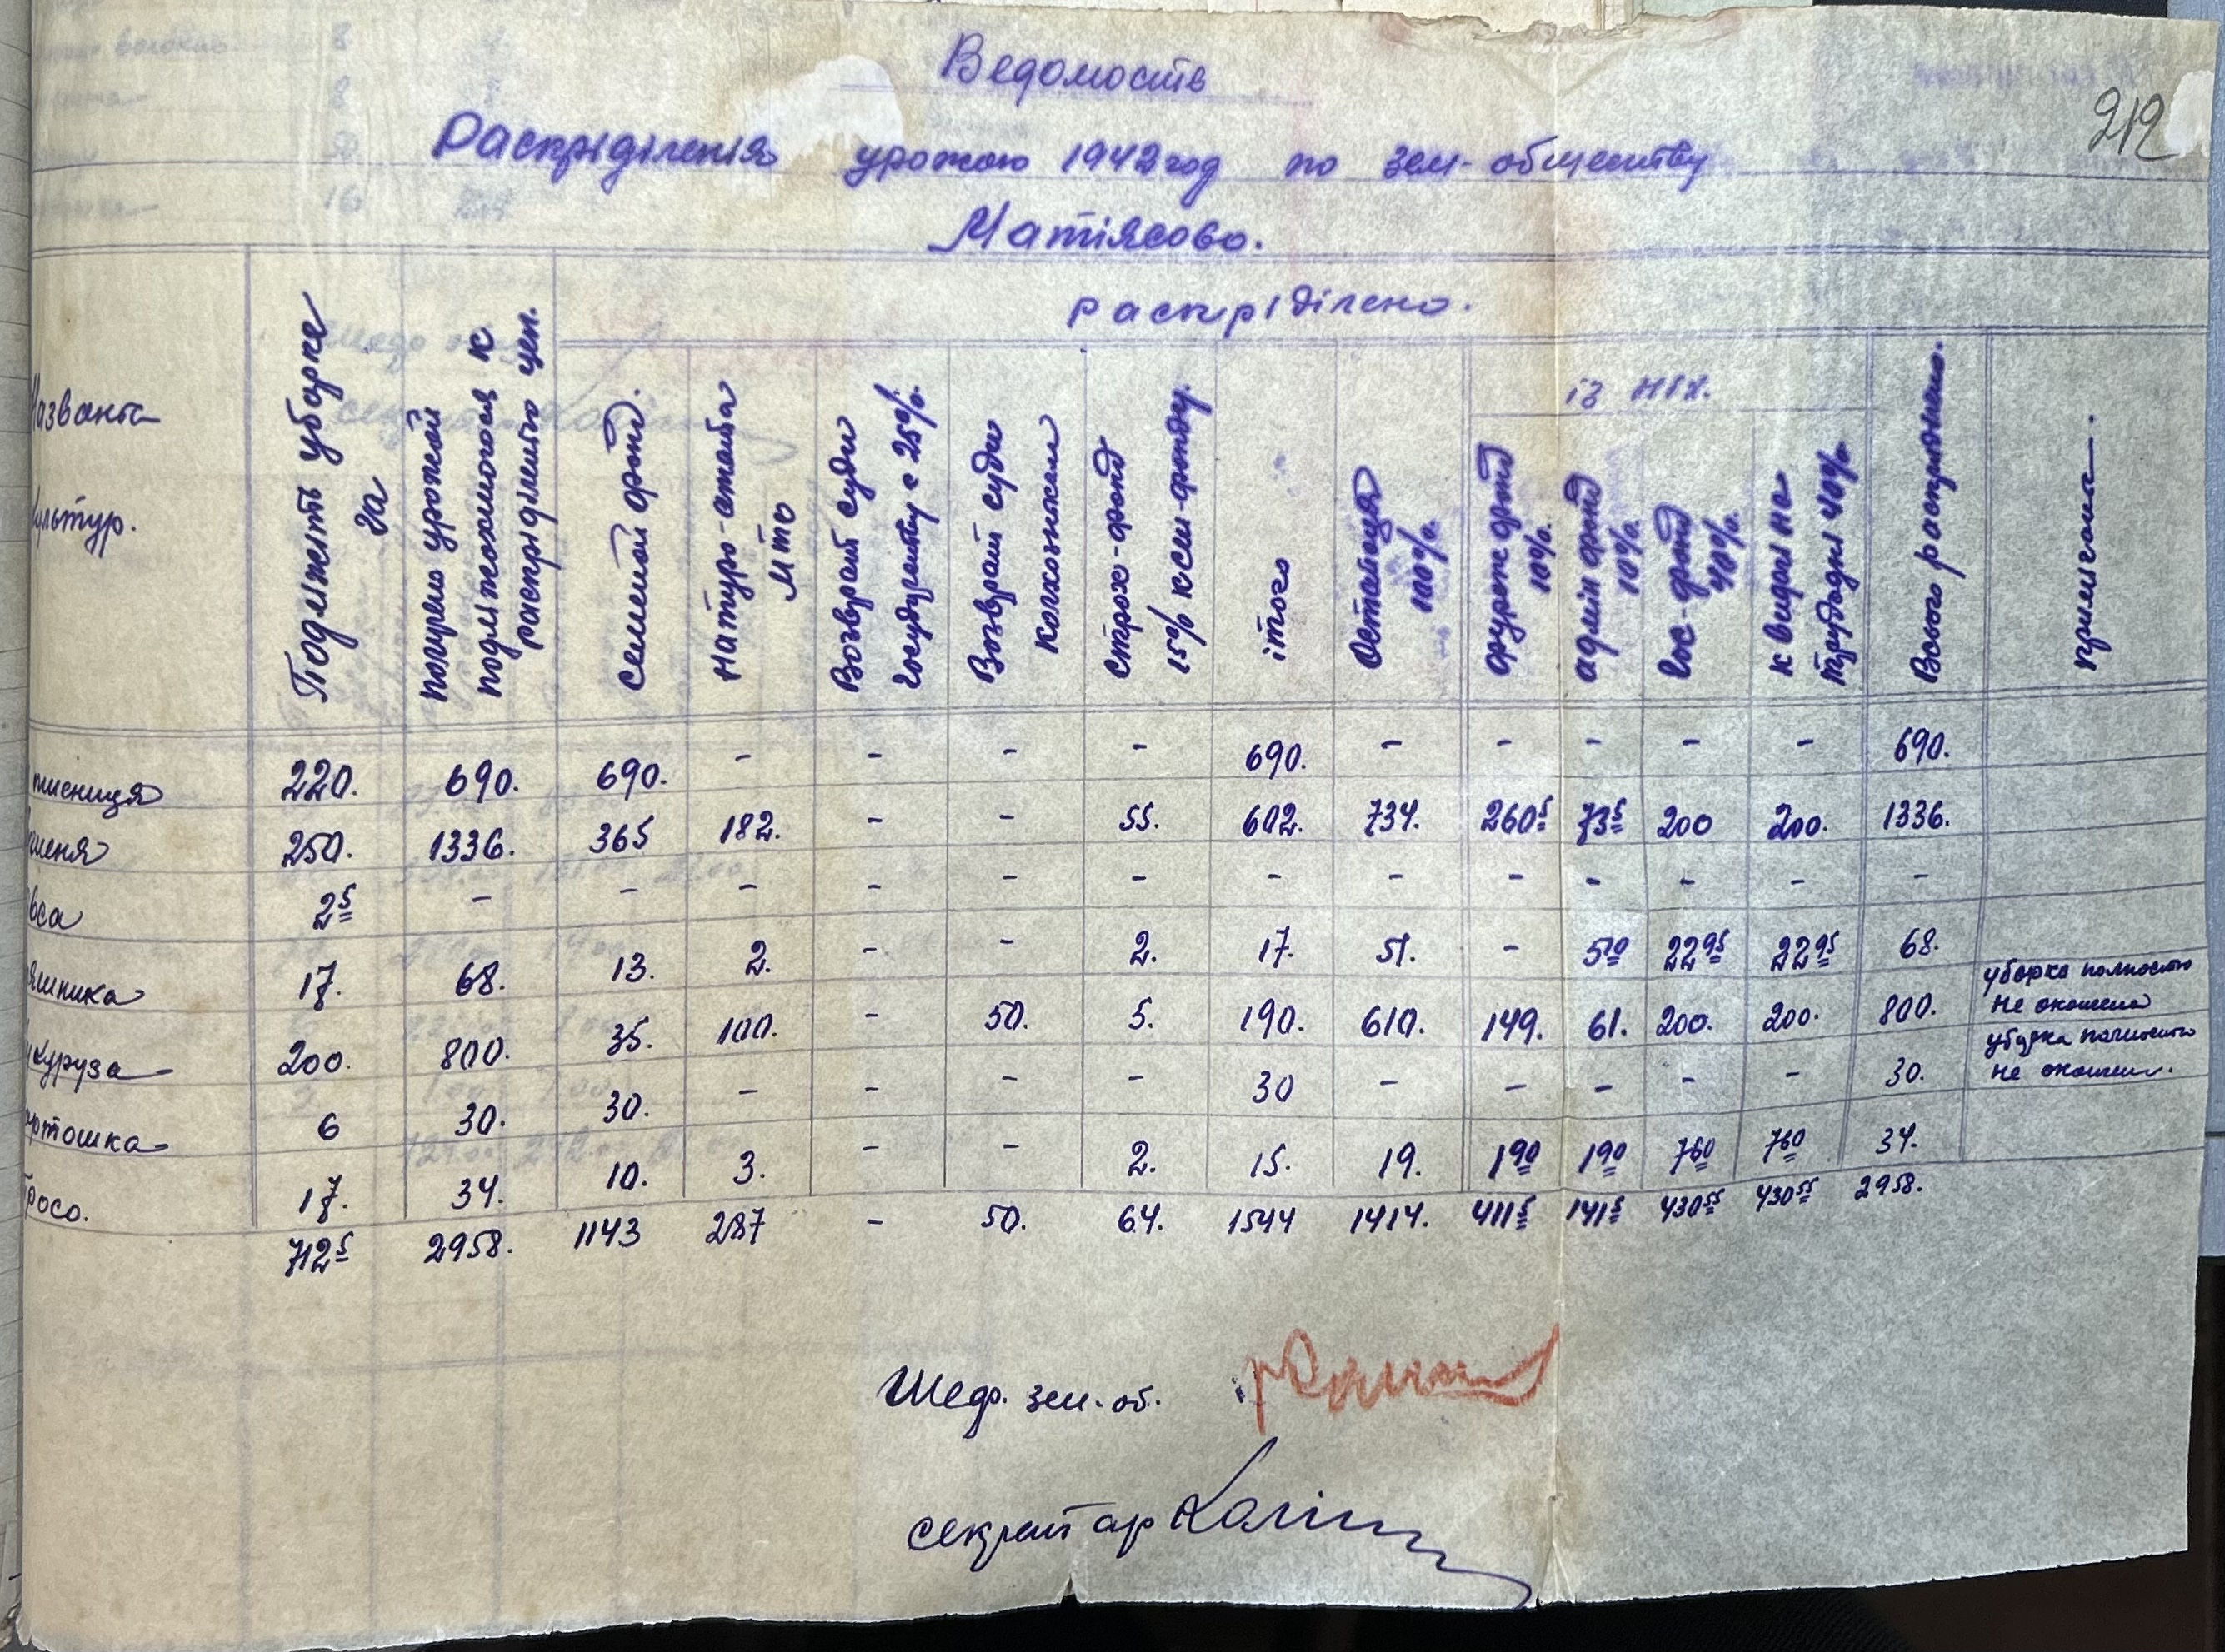 212
Ведомость
Распріділенія урожаю 1942 год по зем-обществу
Матіясово.
Названа культур.
Подлежить уборке га
получено урожай подлежащого к распріділенію цен.
Семеной фонд.
Натур-оплата Мтс
Возврат суди государству с 25%.
Возврат суди колхозникам
страх-фонд 15% к сем-фонду.
ітого
распріділено.
Остаются 100%.
із них.
фураж фонд 10%.
адмін фонд 10%.
гос-фонд 40%.
к видачі на трудодні 40%.
Всього распріділено.
примічана.
пшениця 220. 690. 690. - - - - 690. - - - - - 690.
ячменя 250. 1336. 365 182. - - 55. 602. 734. 260⁵ 73⁵ 200 200. 1336.
овса 2⁵ - - - - - - - - - - - - -
17. 68. 13. 2. - - 2. 17. 51. - 5¹⁰ 22⁹⁵ 22⁹⁵ 68.
кукуруза 200. 800. 35. 100. - 50. 5. 190. 610. 149. 61. 200. 200. 800. уборка полностю не окошена
картошка 6 30. 30. - - - - 30 - - - - - 30. уборка полностю не окошен.
просо. 17. 34. 10. 3. - - 2. 15. 19. 1⁹⁰ 1⁹⁰ 7⁶⁰ 7⁶⁰ 34.
712⁵ 2958. 1143 287 - 50. 64. 1544 1414. 411⁵ 141⁵ 430⁵⁵ 430⁵⁵ 2958.
Шеф. зем.-об.
секретар